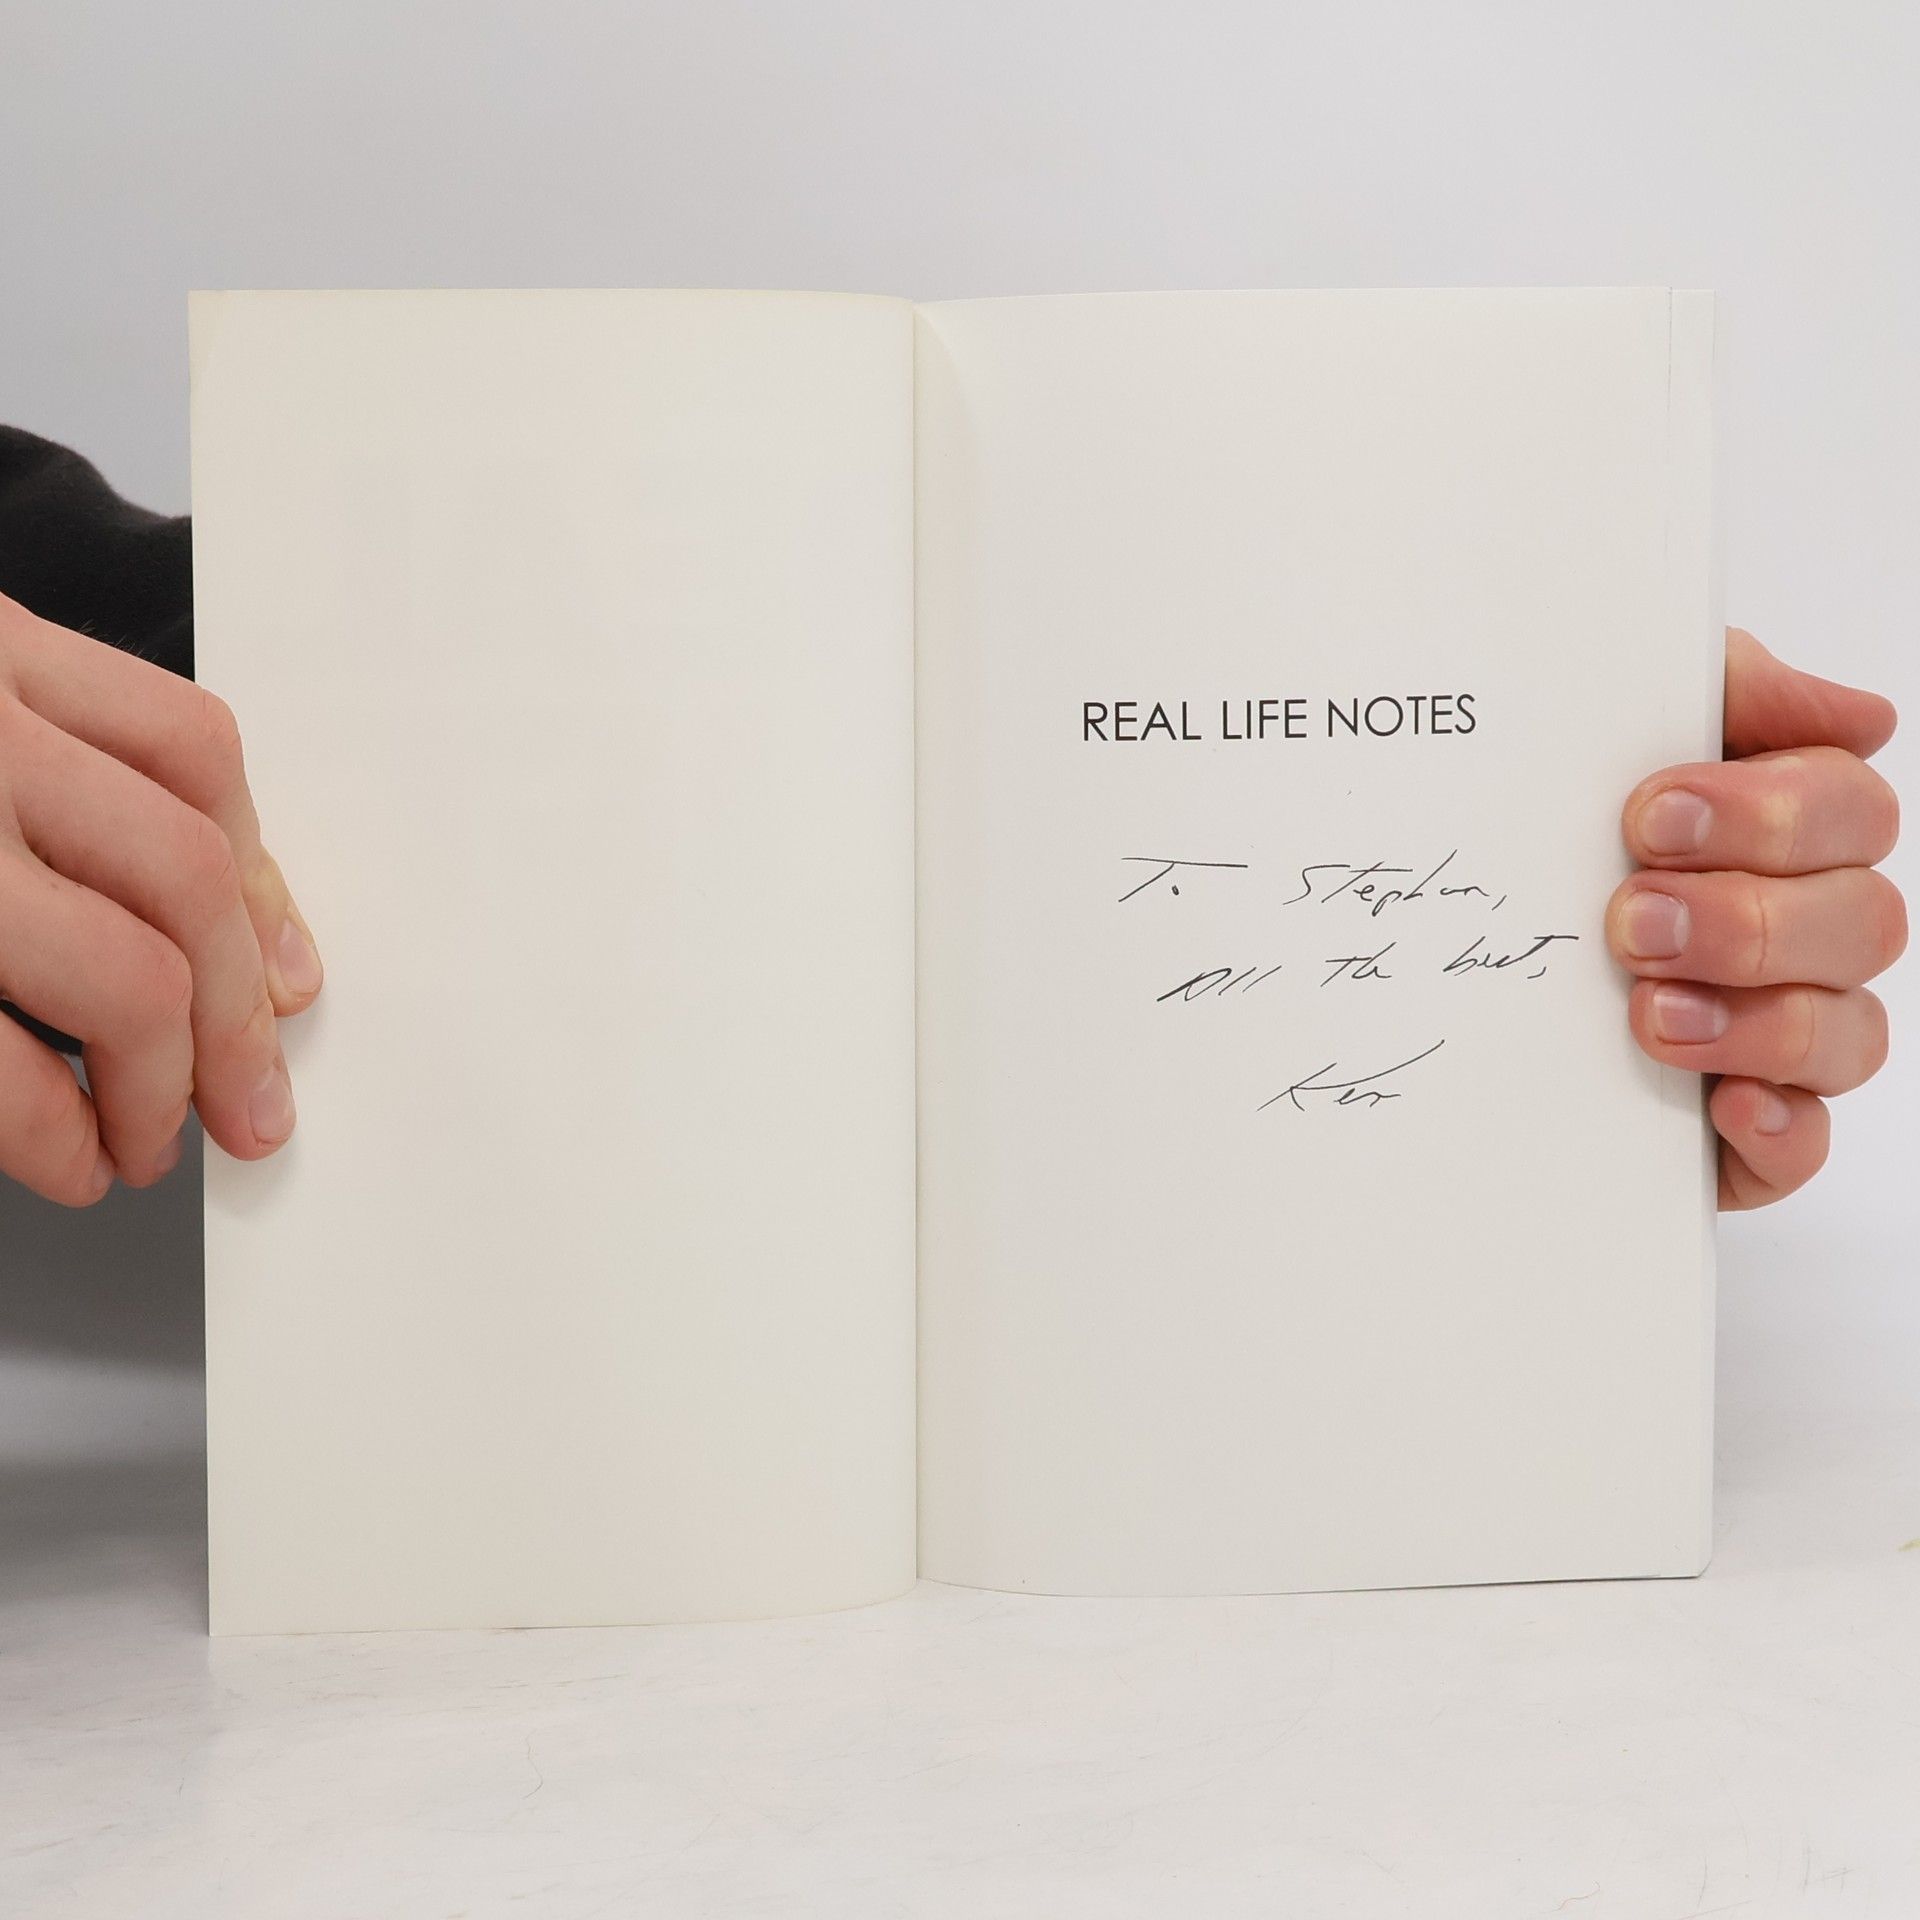 REAL LIFE NOTES
To Stephan,
All the best,
Ken